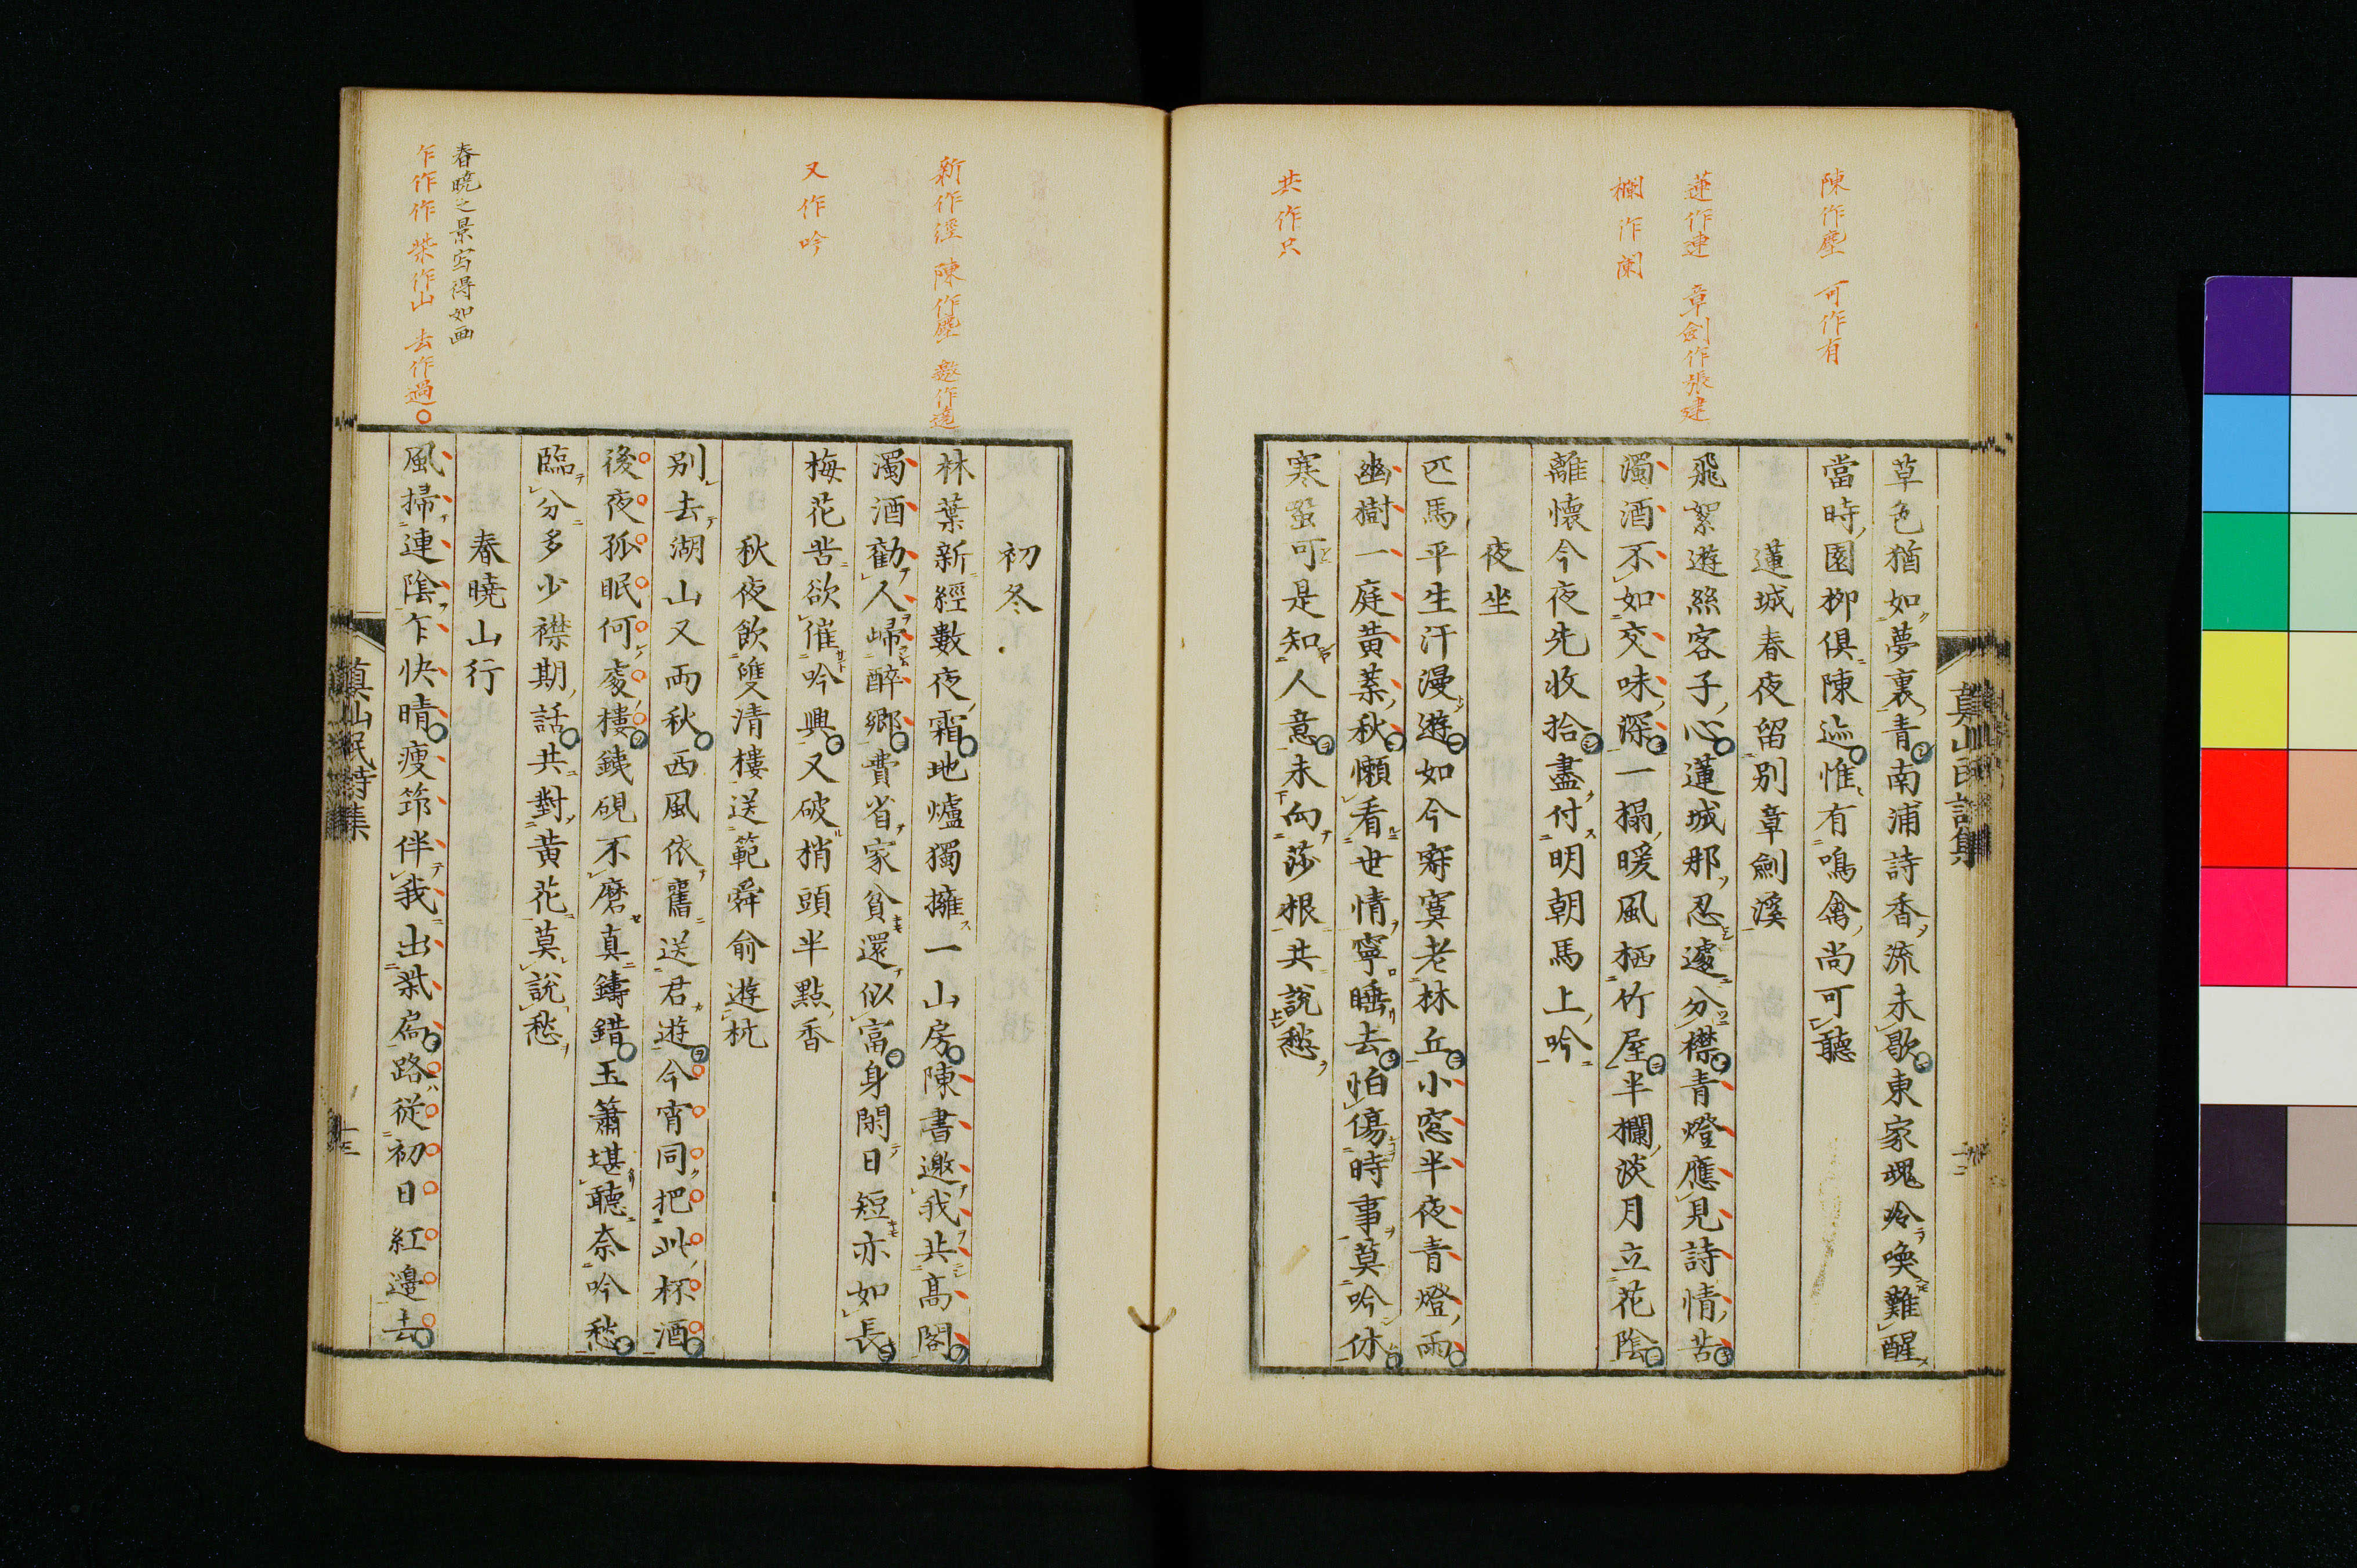 陳作塵 可作有
蓮作連 章劍作張建
欄作闌
共作只
真山民詩集
草色猶如夢裏青南浦詩香流未歇東家塊冷喚難醒
當時園柳俱陳迹惟有鳴禽尚可聽
蓮城春夜留别章劍溪
飛絮遊絲客子心蓮城那忍遽分襟青燈應見詩情苦
濁酒不如交味深一榻暖風栖竹屋半欄淡月立花陰
離懷今夜先收拾盡付明朝馬上吟
夜坐
匹馬平生汗漫遊如今寂寞老林丘小窓半夜青燈雨
幽樹一庭黄葉秋懶看世情寧睡去怕傷時事莫吟休
寒蛩可是知人意未向莎根共說愁
新作經 陳作塵 邀作適
又作吟
春曉之景寫得如画
乍作作 柴作山 去作過
初冬
林葉新經數夜霜地爐獨擁一山房陳書邀我共高閣
濁酒勸人歸醉鄉費省家貧還似富身閑日短亦如長
梅花苦欲催吟興又破梢頭半點香
秋夜飲雙清樓送範舜俞遊杭
别去湖山又兩秋西風依舊送君遊今宵同把此杯酒
後夜孤眠何處樓銕硯不磨真鑄錯玉簫堪聽奈吟愁
臨分多少襟期話共對黄花莫說愁
春曉山行
風掃連陰乍快晴瘦筇伴我出柴扃路從初日紅邊去
真山民詩集
十三